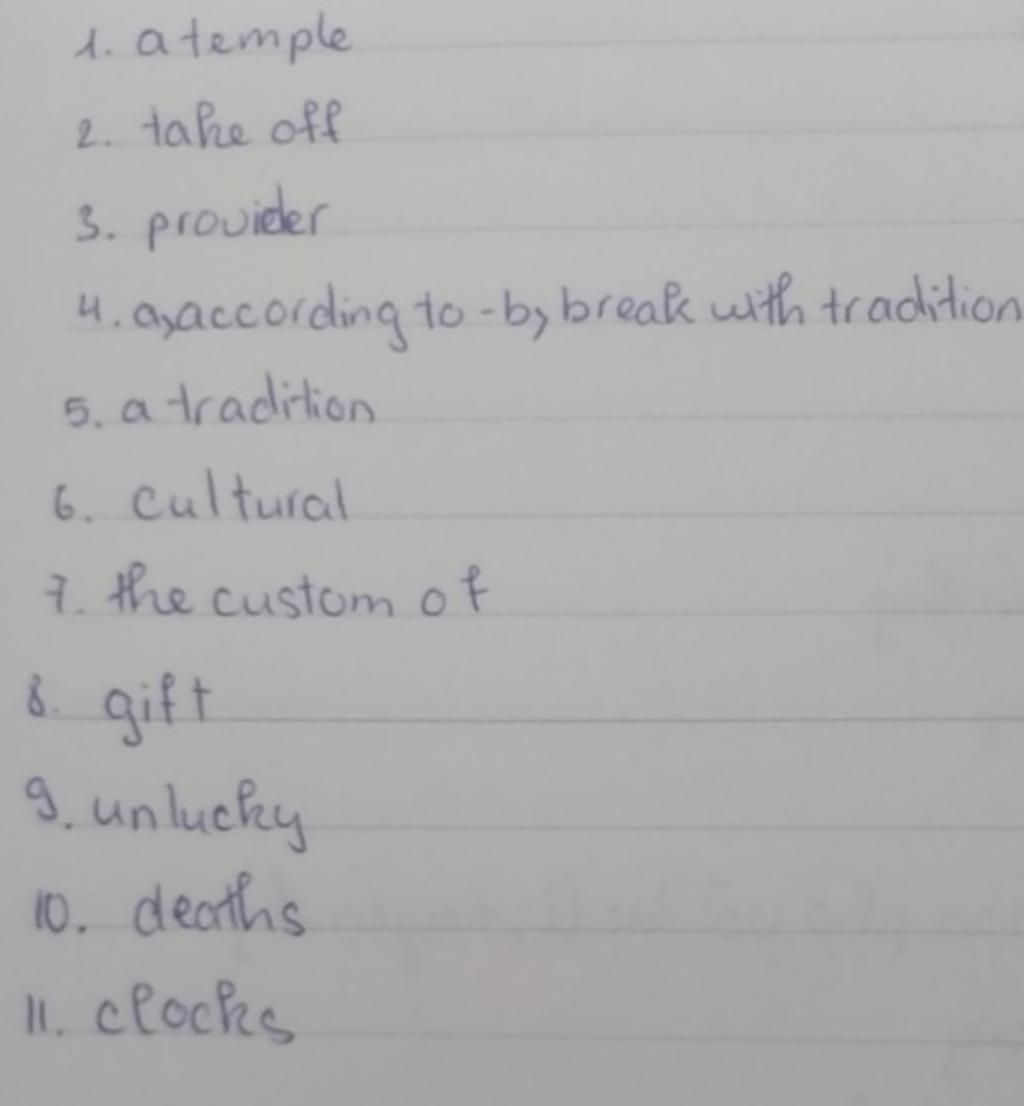 1. a temple
2. take off
3. provider
4. a, according to - b, break with tradition
5. a tradition
6. cultural
7. the custom of
8. gift
9. unlucky
10. deaths
11. clocks